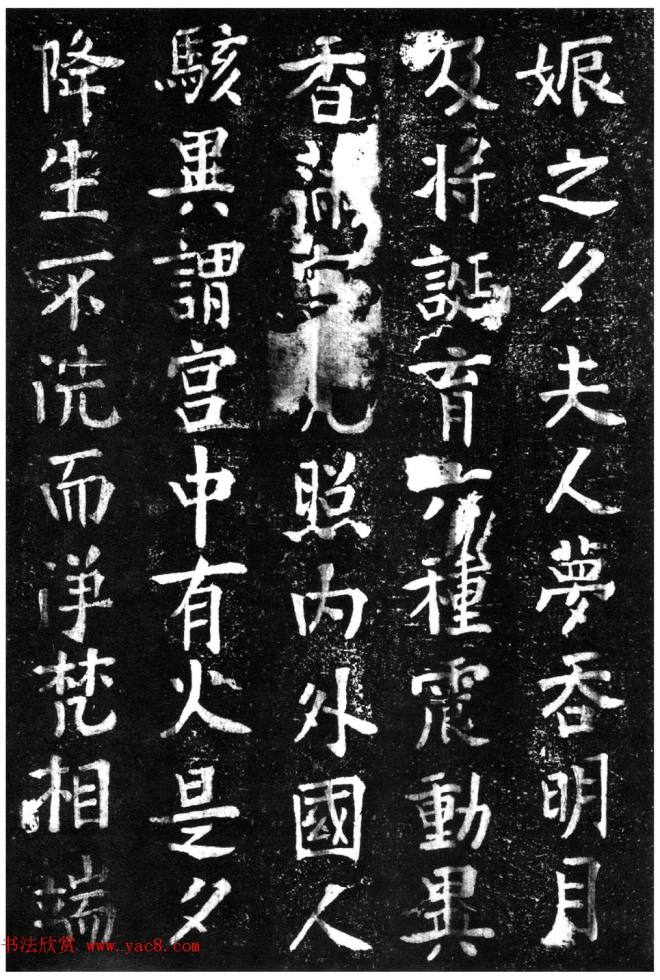 娠之夕夫人夢吞明月
及将誕育六種震動異
香滿宫光照内外國人
駭異謂宫中有火是夕
降生不洗而浄梵相端
书法欣赏 www.yac8.com